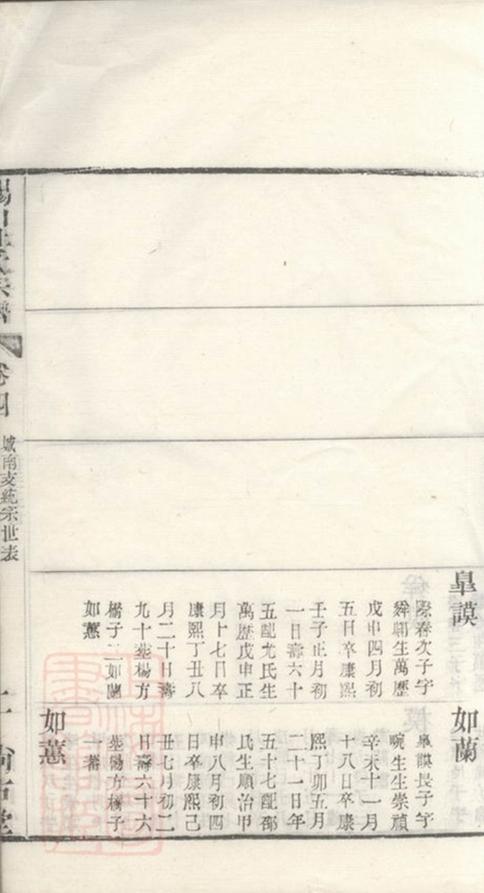 皐謨
春次子字
舜卿生萬歷
戊申四月初
五日卒康熙
壬子正月初
一日壽六十
五配尤氏生
萬歷戊申正
月十七日卒
康熙丁丑八
月二十日壽
九十葬楊方
橋子二如蘭
如蕙
如蘭
皐謨長子字
畹生生崇禎
辛未十一月
十八日卒康
熙丁卯五月
二十一日年
五十七配鄒
氏生順治甲
申八月初四
日卒康熙己
丑七月初二
日壽六十六
葬楊方橋子
一
如蕙
卷四
城南支統宗世表